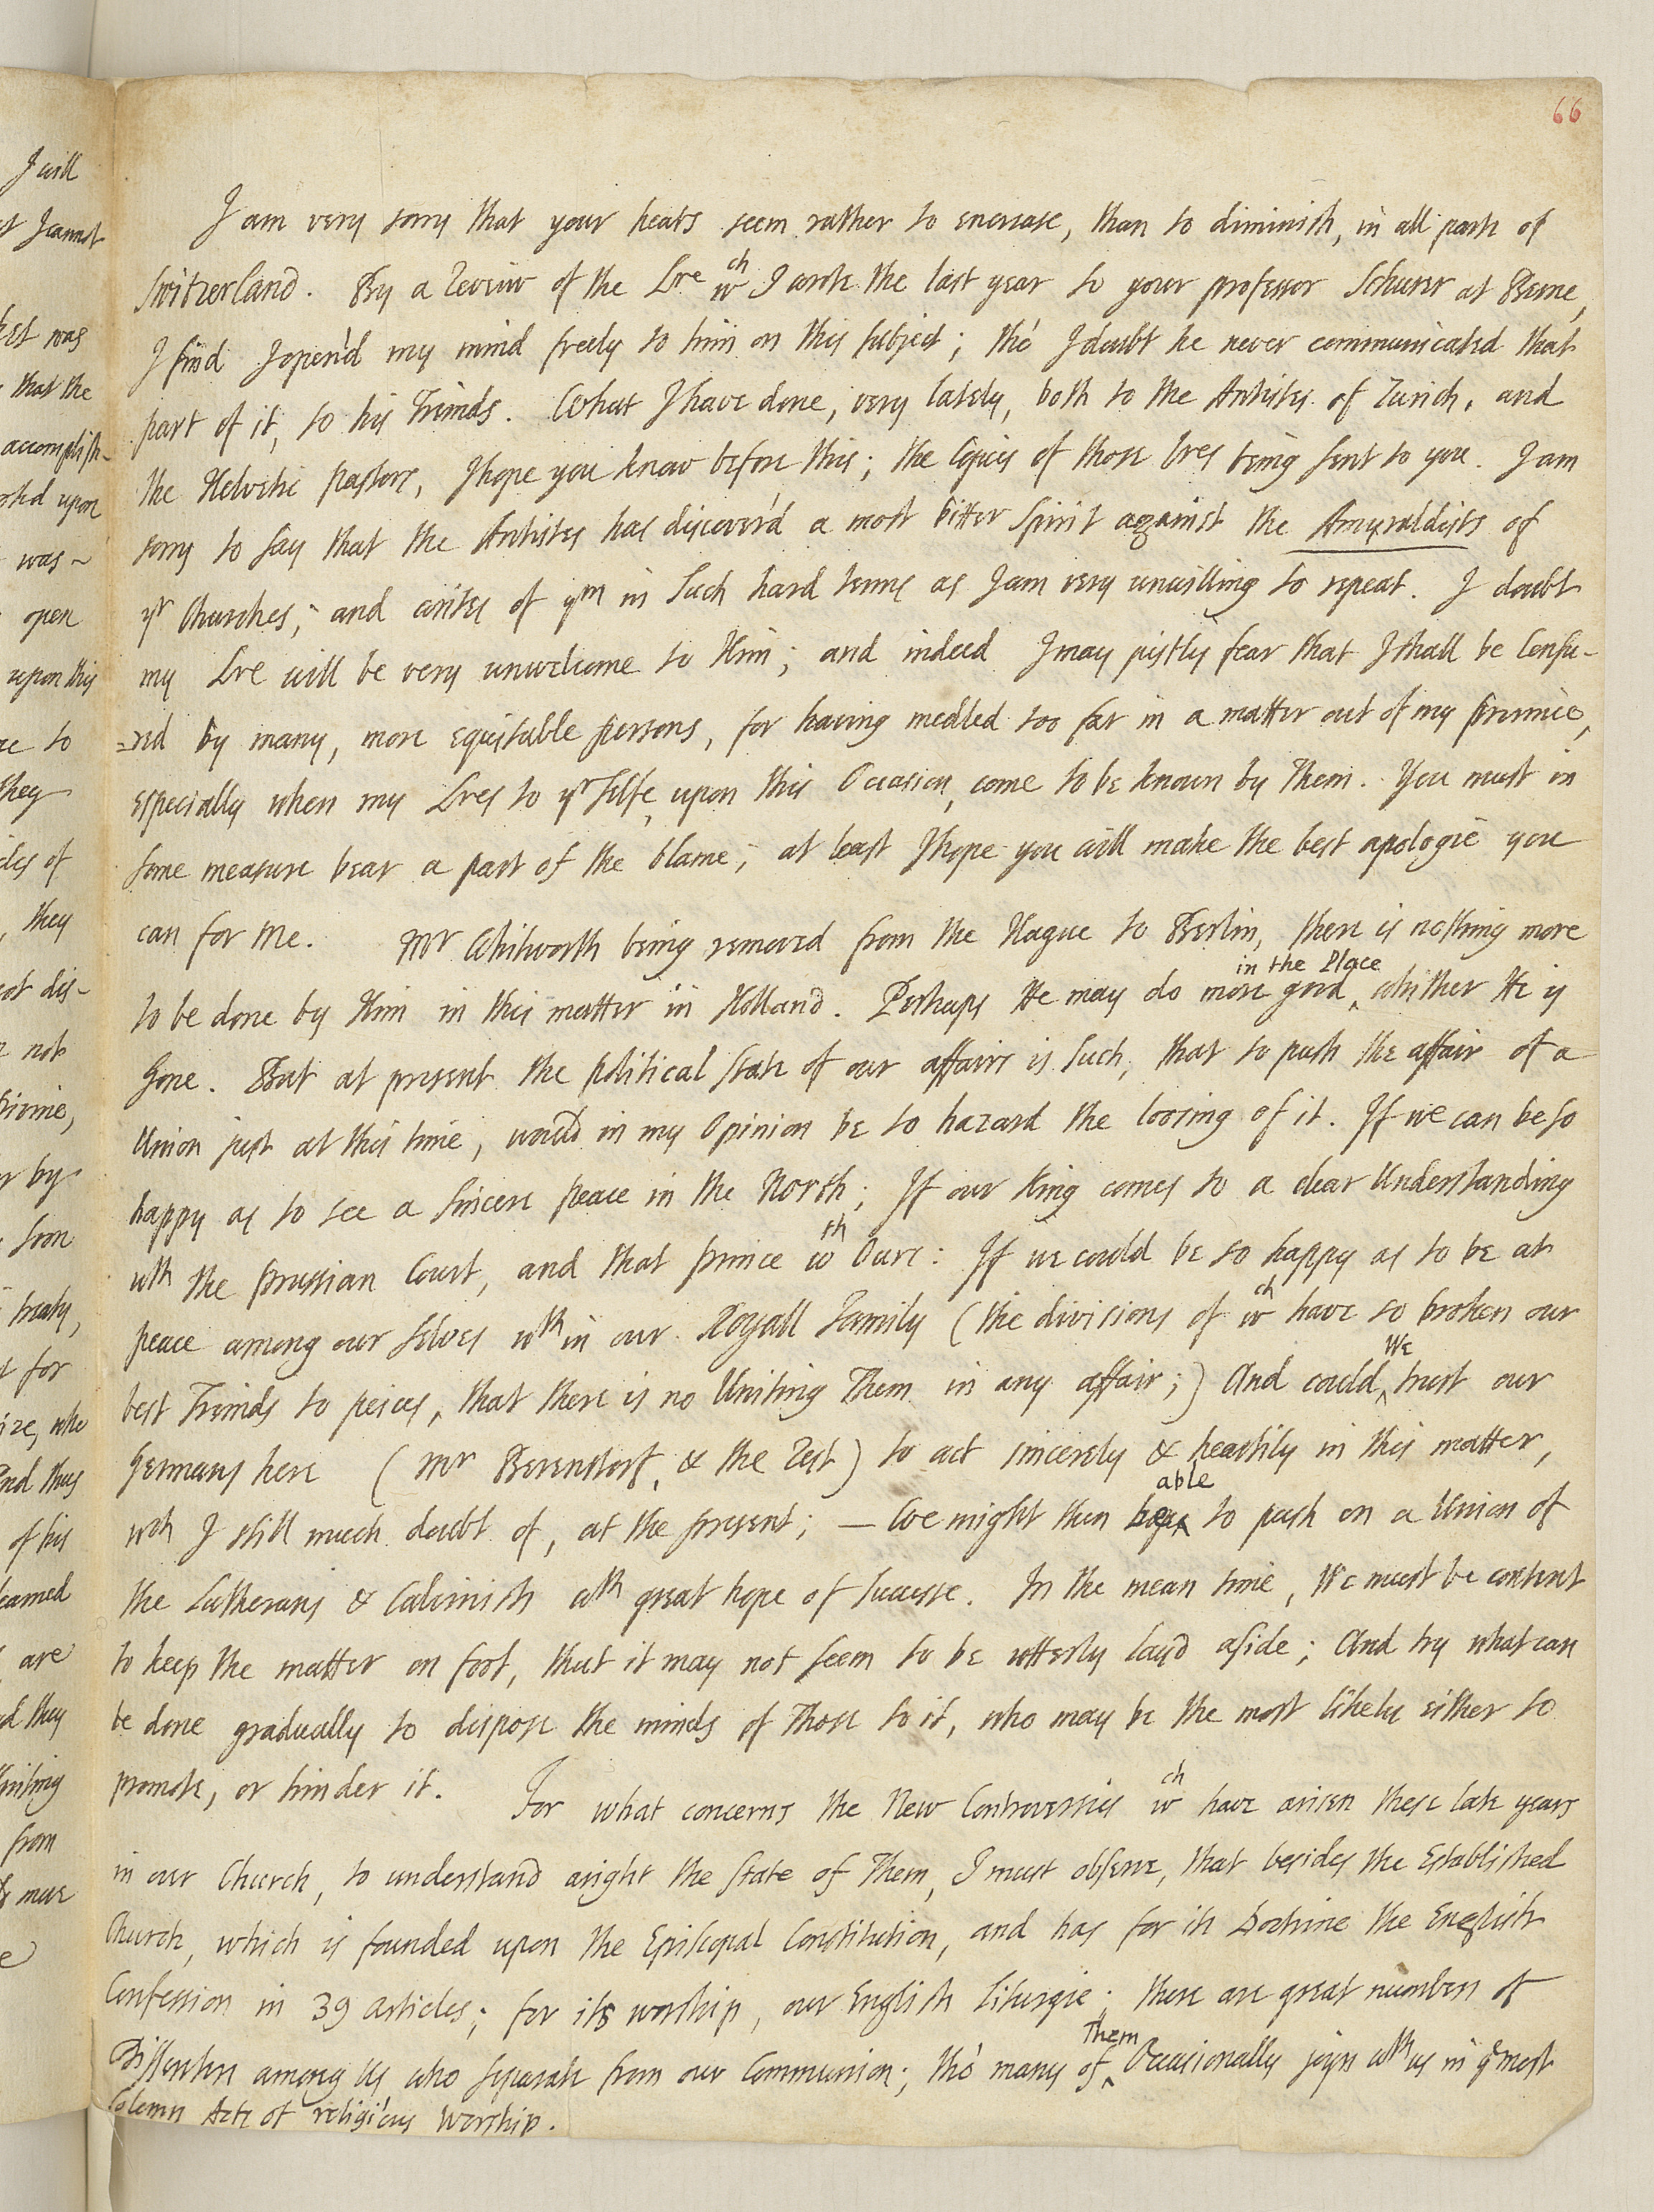 66
I am very sorry that your heats seem rather to encrease, than to diminish, in all parts of
Switzerland. By a Review of the Lre wch I wrote the last year to your professor Schurer at Berne,
I find I open'd my mind freely to him on this subject; tho' I doubt he never communicated that
part of it, to his Freinds. What I have done, very lately, both to the Antistes of Zurich, and
the Helvetic pastors, I hope you know before this; the Copies of those Lres being sent to you. I am
sorry to say that the Antistes has discover'd a most bitter Spirit against the Amyraldists of
yr Churches; and writes of ym in Such hard terms as I am very unwilling to repeat. I doubt
my Lre will be very unwelcome to Him; and indeed I may justly fear that I shall be Censu-
=red by many, more equitable persons, for having medled too far in a matter out of my province,
especially when my Lres to yr Selfe, upon this Occasion, come to be known by Them. You must in
some measure bear a part of the blame; at least I hope you will make the best apologie you
can for Me. Mr Whitworth being removed from the Hague to Berlin, there is nothing more
to be done by Him in this matter in Holland. Perhaps He may do more good in the Place whither He is
Gone. But at present the political State of our affairs is such, that to push the affair of a
Union just at this time, would in my Opinion be to hazard the loosing of it. If we can be so
happy as to see a sincere peace in the North; If our King comes to a clear Understanding
wth the prussian Court, and that prince wth Ours: If we could be so happy as to be at
peace among our selves wthin our Royall Family (the divisions of wch have so broken our
best Freinds to peices, that there is no Uniting Them in any affair;) And could We trust our
Germans here (Mr Berenstorf, & the Rest) to act sincerely & heartily in this matter,
wch I still much doubt of, at the present; — We might then be able to push on a Union of
the Lutherans & Calvinists wth great hope of Successe. In the mean time, We must be content
to keep the matter on foot, that it may not seem to be utterly layd aside; And try what can
be done gradually to dispose the minds of Those to it, who may be the most likely either to
promote, or hinder it. For what concerns the New Controversies wch have arisen these late years
in our Church, to understand aright the State of Them, I must observe, that besides the Established
Church, which is founded upon the Episcopal Constitution, and has for its Doctrine the English
Confession in 39 Articles; for its worship, our English Liturgie; there are great numbers of
Dissenters among Us who separate from our Communion; tho' many of Them Occasionally joyn wth us in ye most
Solemn Acts of religious Worship.